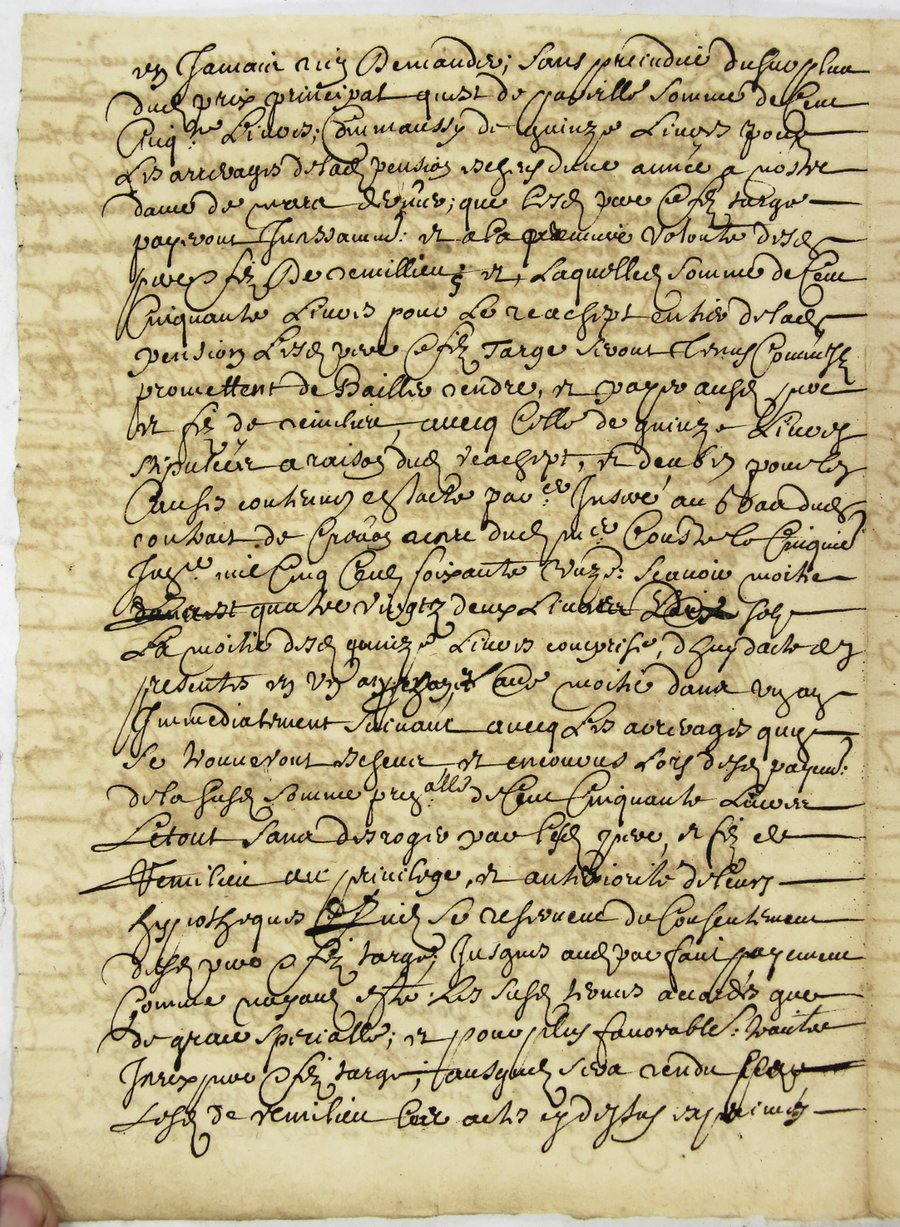 en Jamais rien Demander; sans preiudice du surplus
dud prix principal quest de pareille somme de Cent
Cinq.te Livres; Comm aussy de quinze Livres pour
Les arrerages de lad pension escheus dune année a nostre
dame de mars dernier; que lesd pere et fils targe
payeront Incessamm.t et a la premiere volonte desd
pere et fils De remillieu; et, Laquelled somme de Cent
Cinquante Livres pour Le reachept entier de lad
pension Lesd pere et fils Targe seront Tenus Comme
promettent de Bailler rendre, et payer ausd pere
et fils de remilieu, avecq Celle de quinze Livres
a raison dud reachept, et pour les
Causes contenues et acte par Inseré au dud
contract de dud Couste le Cinquie
mil Cinq Cens soixante unze: Scavoir moitie
quatre vingtz deux Livres sols
La moitie desd quinze Livres comprise, d'huy datte des
presentes en un an et aue moitie dans un an
Immediatement suivant avecq Les arrerages quy
se trouveront escheus et encourus Lors desd payem.t
de la susd somme prin.alle de Cent Cinquante Livres
Le tout sans desroger par lesd pere, et fils de
Remilieu au privilege, et anteriorite de leurs
hypotheques quils se reservent du Consentement
desd pere et fils targe; Jusques aud parfaict payement
Comme nayant esté Les susd termes accordés que
de grace specialle; et pour plus favorable traiter
Iceux pere et fils targe; ausquels sera rendu par
Lesd de remilieu les actes cy dessus exprimés